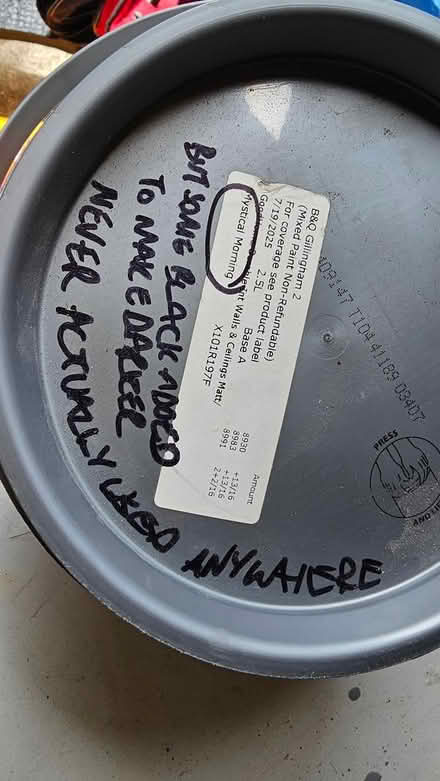 B&Q Gillingham 2
(Mixed Paint Non-Refundable)
For coverage see product label
7/19/2025
2.5L
Base A
Walls & Ceilings Matt/
Mystical Morning
X101R197F
Amount
8930 +13/16
8983 +13/16
8991 2+2/16
BUT SOME BLACK ADDED
TO MAKE DARKER
NEVER ACTUALLY USED ANYWHERE
T104 41189 03407
PRESS